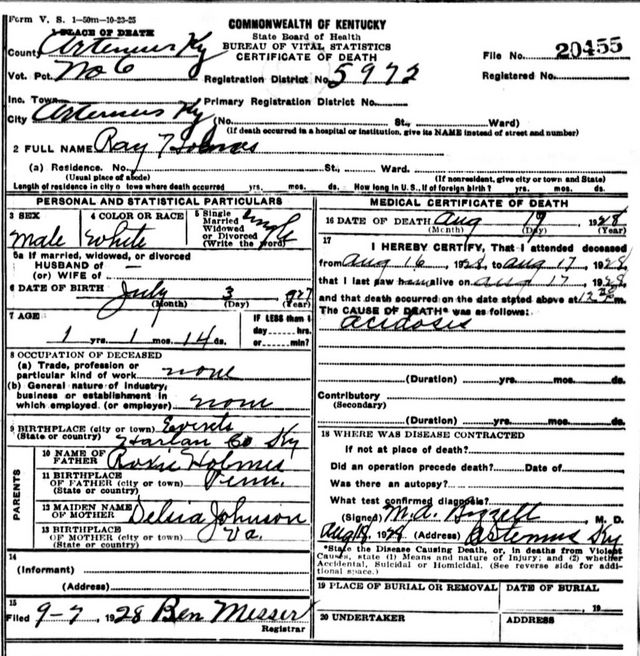 Form V. S. 1—50m—10-23-25
1 PLACE OF DEATH
COMMONWEALTH OF KENTUCKY
State Board of Health
BUREAU OF VITAL STATISTICS
CERTIFICATE OF DEATH
County Artemus Ky
File No. 20455
Vot. Pct. No 6
Registration District No. 5972
Registered No.
Inc. Town
Primary Registration District No.
City Artemus Ky (No. St., Ward)
(If death occurred in a hospital or institution, give its NAME instead of street and number)
2 FULL NAME Ray Holmes
(a) Residence. No. St., Ward.
(Usual place of abode) (If nonresident, give city or town and State)
Length of residence in city o town where death occurred yrs. mos. ds. How long in U. S., if of foreign birth? yrs. mos. ds.
PERSONAL AND STATISTICAL PARTICULARS
3 SEX Male
4 COLOR OR RACE White
5 Single Married Widowed or Divorced (Write the word) Single
5a If married, widowed, or divorced
HUSBAND OF —
(or) WIFE of
6 DATE OF BIRTH July 3 1927
(Month) (Day) (Year)
7 AGE
1 yrs. 1 mos. 14 ds.
IF LESS than 1
day hrs.
or min?
8 OCCUPATION OF DECEASED
(a) Trade, profession or
particular kind of work none
(b) General nature of industry,
business or establishment in
which employed. (or employer) none
9 BIRTHPLACE (city or town)
(State or country) Harlan Co Ky
PARENTS
10 NAME OF
FATHER Roxie Holmes
11 BIRTHPLACE
OF FATHER (city or town) Penn.
(State or country)
12 MAIDEN NAME
OF MOTHER Johnson
13 BIRTHPLACE
OF MOTHER (city or town) Va.
(State or country)
14
(Informant)
(Address)
15
Filed 9-7, 1928 Ben Messer
Registrar
MEDICAL CERTIFICATE OF DEATH
16 DATE OF DEATH Aug 1928
(Month) (Day) (Year)
17
I HEREBY CERTIFY, That I attended deceased
from Aug 16, 1928, to Aug 17, 1928,
that I last saw him alive on Aug 17, 1928,
and that death occurred on the date stated above at 12 m.
The CAUSE OF DEATH* was as follows:
acidosis
(Duration) yrs. mos. ds.
Contributory
(Secondary)
(Duration) yrs. mos. ds.
18 WHERE WAS DISEASE CONTRACTED
If not at place of death?
Did an operation precede death? Date of
Was there an autopsy?
What test confirmed diagnosis?
(Signed) M. D.
Aug 18, 1928 (Address) Artemus Ky
*State the Disease Causing Death, or, in deaths from Violent
Causes, state (1) Means and nature of Injury; and (2) whether
Accidental, Suicidal or Homicidal. (See reverse side for addi-
tional space.)
19 PLACE OF BURIAL OR REMOVAL
DATE OF BURIAL
19
20 UNDERTAKER
ADDRESS